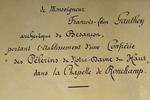 de Monseigneur
François-Léon Gauthey
archevêque de Besançon,
portant l'établissement d'une Confrérie
des Pèlerins de Notre-Dame du Haut
dans la Chapelle de Ronchamp.